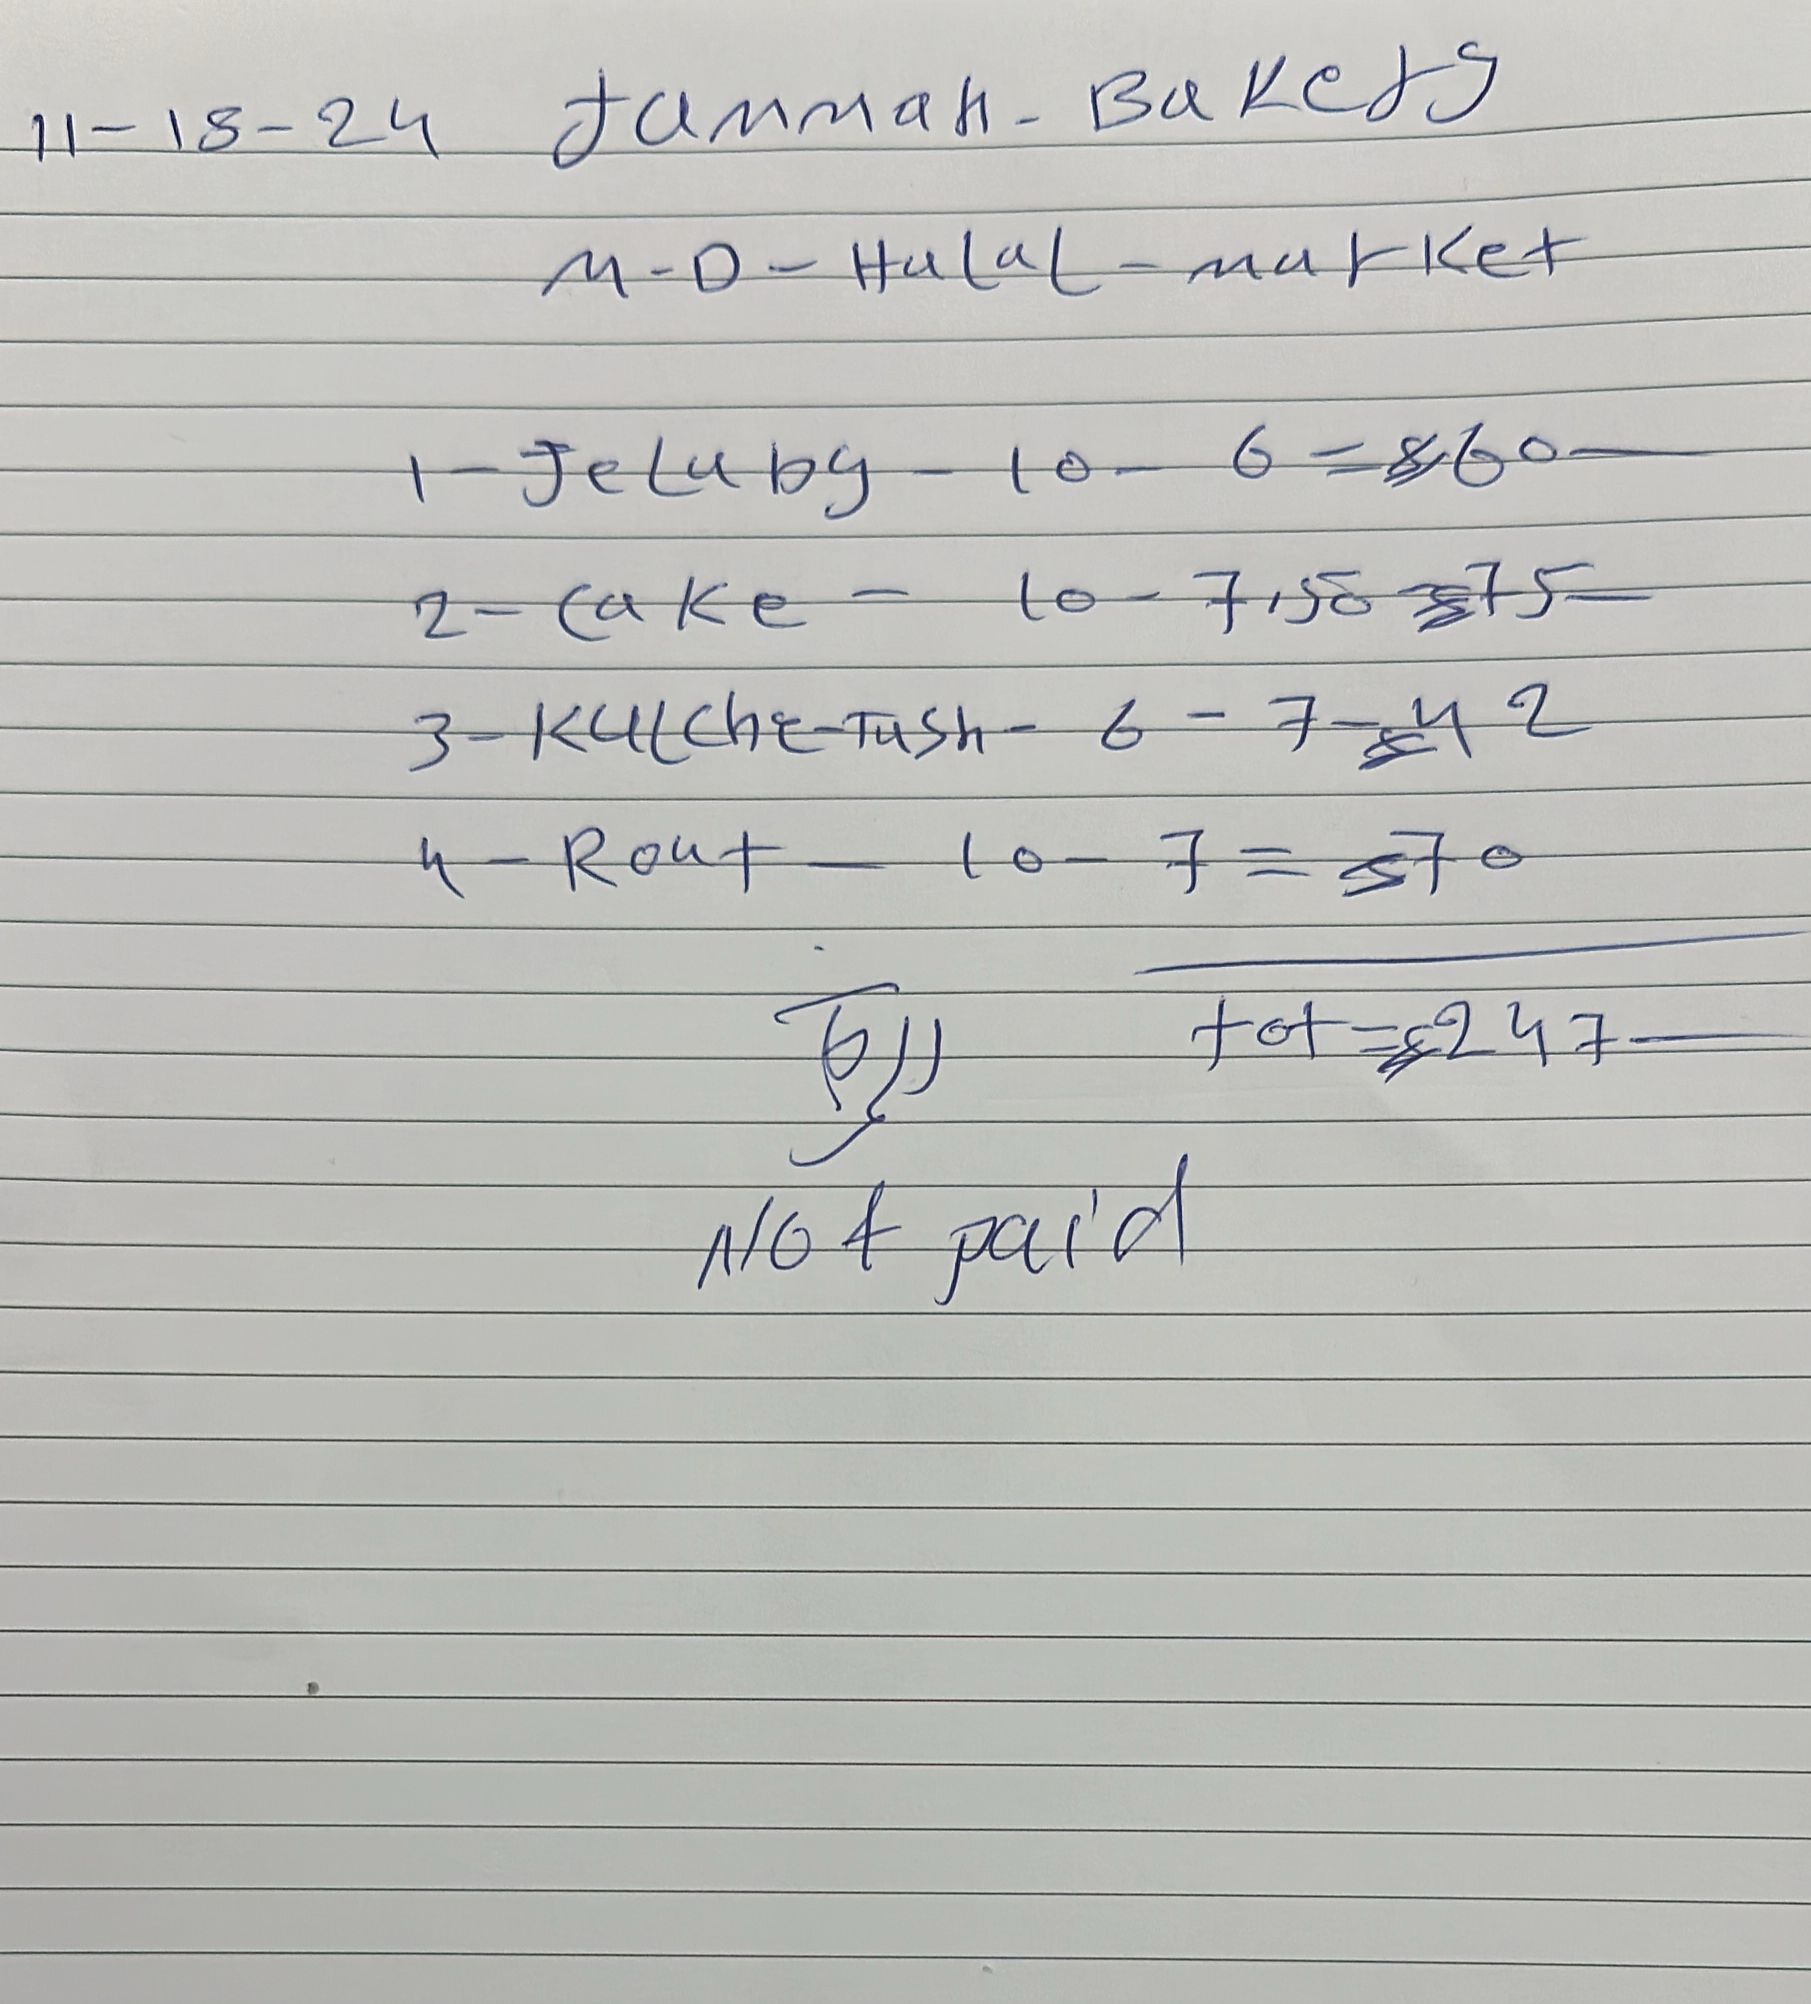 11-18-24 Jannah-Bakery
M-D-Halal-market
1-Jelaby-10-6=$60
2-Cake-10-7,50=$75
3-Kulche-Tash-6-7=$42
4-Rout-10-7=$70
tot=$247
Not paid